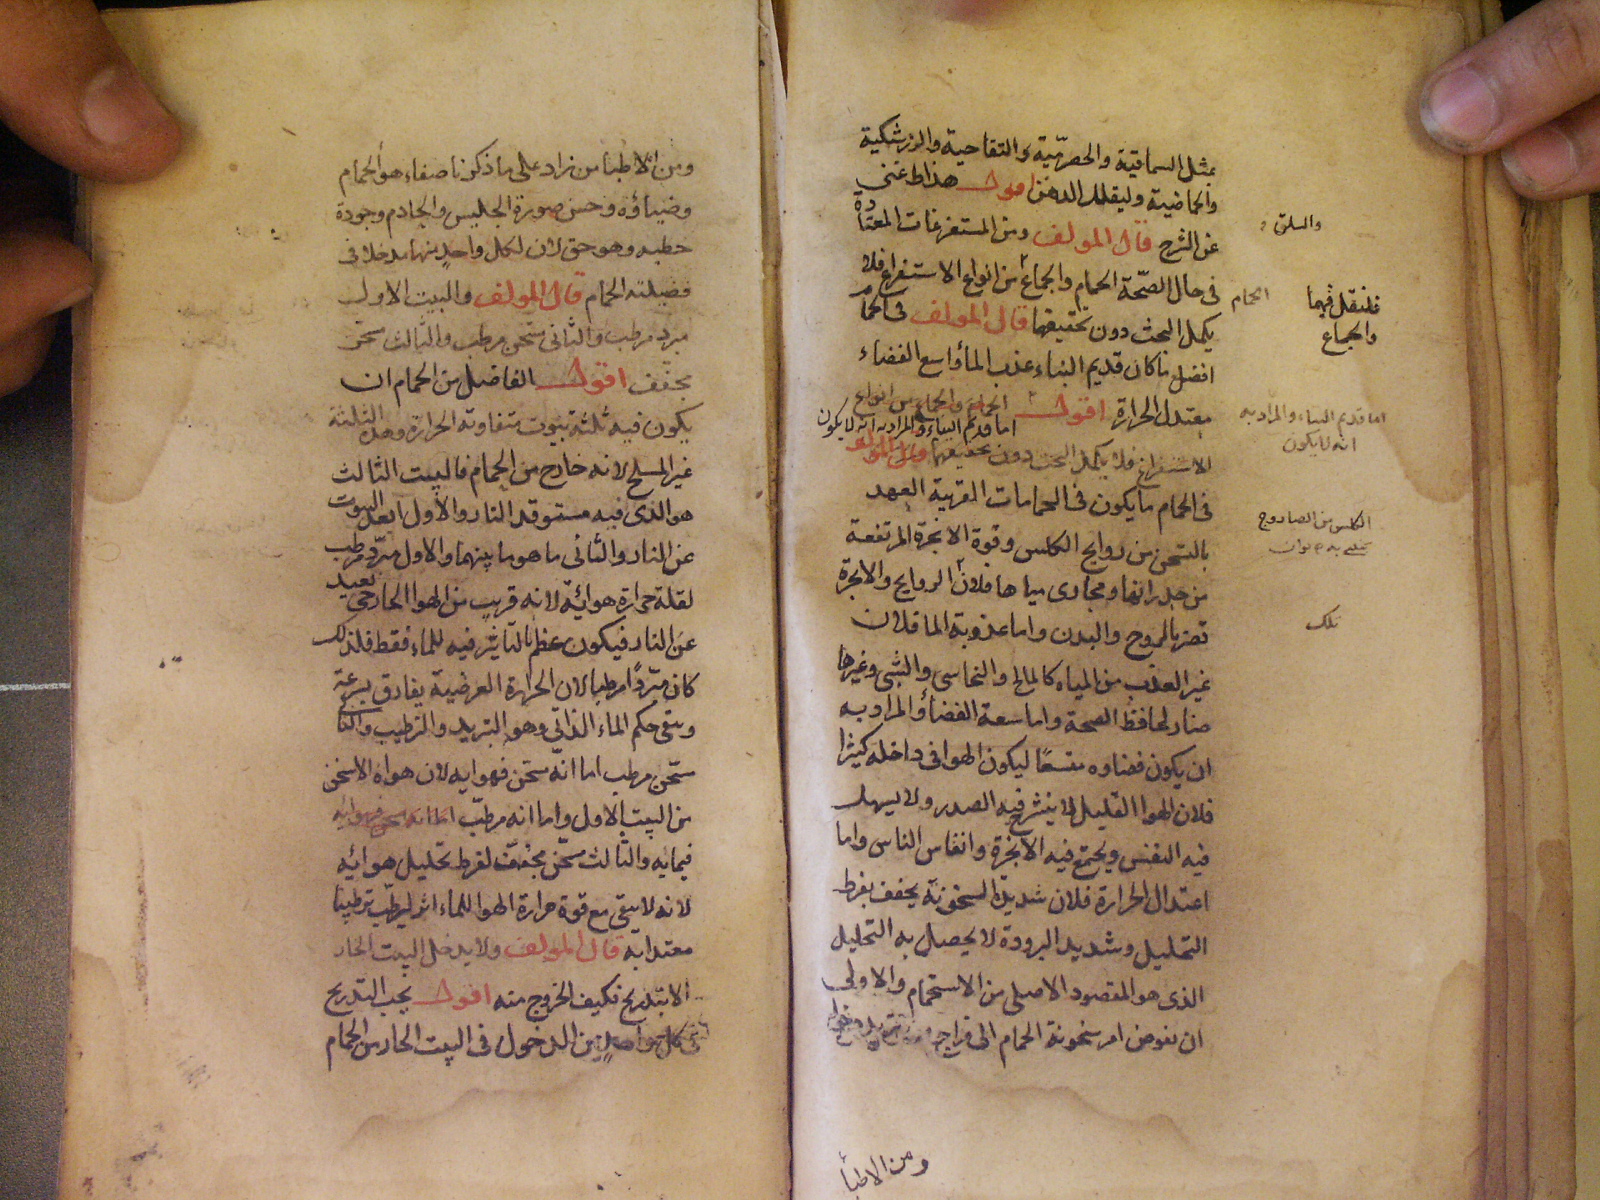 بمثل السماقية والحصرمية والتفاحية والزرشكية
والحماضية وليقلل الدهن اقول هذا مستغنى
عن الشرح قال المولف ومن المستفرغات المعتادة
فى حال الصحة الحمام والجماع من انواع الاستفراغ فلا
يكمل البحث دون تحقيقها قال المولف فى الحمام
افضل ما كان قديم البناء عذب الماء واسع الفضاء
معتدل الحرارة اقول الحمام والجماع من انواع
اما قديم البناء والمراد به انه لا يكون
الاستفراغ فلا يكمل البحث دون تحقيقها قال المولف
فى الحمام ما يكون فى الحمامات القريبة العهد
بالتسخن من روايح الكلس وقوة الابخرة المرتفعة
من جدرانها ومجارى مياهها فلان الروايح والابخرة
تضر بالروح والبدن واما عذوبة الما فلان
غير العذب من المياه كالمالح والنحاسى والشبى وغيرها
ضار لحافظ الصحة واما سعة الفضاء والمراد به
ان يكون فضاوه متسعًا ليكون الهوا فى داخله كثيرا
فلان الهوا القليل لا ينشرح فيه الصدر ولا يسهل
فيه النفس ويجتمع فيه الابخرة وانفاس الناس واما
اعتدال الحرارة فلان شديد السخونة يجفف بفرط
التحليل وشديد البرودة لا يحصل به التحليل
الذى هو المقصود الاصلى من الاستحمام والاولى
ان نفوض امر سخونة الحمام الى مزاج
ومن الاطبأ
والسلق
الحمام
فلنقل فيهما
والجماع
اما قديم البناء والمراد به
انه لا يكون
الكلس من الصاروج
تلك
ومن الاطبا من زاد على ما ذكرنا صفاء هو الحمام
وضياؤه وحسن صورة الجليس والخادم وجودة
حطبه وهو حق لان لكل واحد منها مدخلا فى
فضيلته الحمام قال المولف والبيت الاول
مبرد مرطب والثانى مسخن مرطب والثالث مسخن
مجفف اقول الفاضل من الحمام ان
يكون فيه ثلثة بيوت متفاوتة الحرارة وهذه الثلثة
غير المسلخ لانه خارج من الحمام فالبيت الثالث
هو الذى فيه مستوقد النار والاول ابعد البيوت
عن النار والثانى ما هو ما بينهما والاول مبرد مرطب
لقلة حرارة هوائه لانه قريب من الهوا الخارجى بعيد
عن النار فيكون عظم التاثير فيه للماء فقط فلذلك
كان مبردًا مرطبا لان الحرارة العرضية يفارق بسرعة
وبقى حكم الماء الذاتى وهو التبريد والترطيب والثانى
مسخن مرطب اما انه مسخن فهوايه لان هواه الاسخن
من البيت الاول واما انه مرطب اما انه مسخن فهوايه
فيمايه والثالث مسخن مجفف لفرط تحليل هوائه
لانه لا يبقى مع قوة حرارة الهوا للماء اثر ليرطب ترطيبا
معتدا به قال المولف ولا يدخل البيت الحار
الا بتدريج فكيف الخروج منه اقول يجب التدريج
فى كل واحد من الدخول فى البيت الحار من الحمام